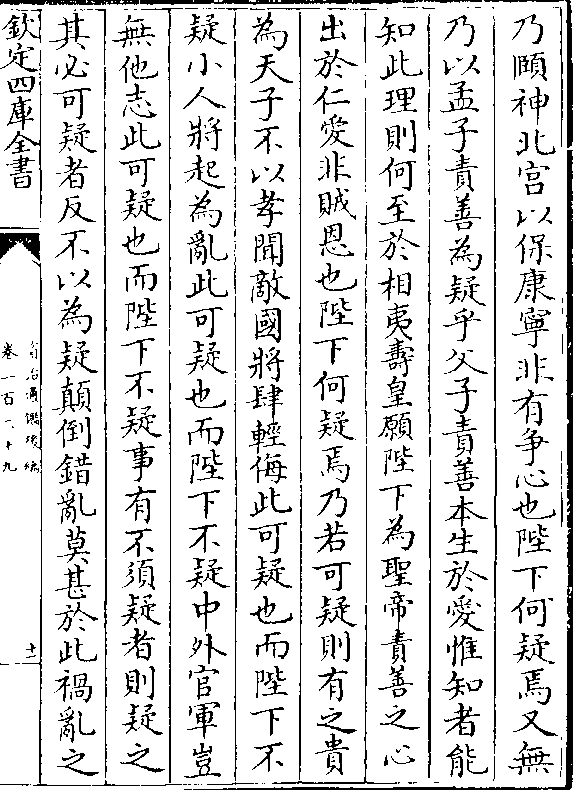 乃頤神北宫以保康寧非有争心也陛下何疑焉又無
乃以孟子責善為疑乎父子責善本生於愛惟知者能
知此理則何至於相夷壽皇願陛下為聖帝責善之心
出於仁愛非賊恩也陛下何疑焉乃若可疑則有之貴
為天子不以孝聞敵國將肆輕侮此可疑也而陛下不
疑小人將起為亂此可疑也而陛下不疑中外官軍豈
無他志此可疑也而陛下不疑事有不須疑者則疑之
其必可疑者反不以為疑顛倒錯亂莫甚於此禍亂之
欽定四庫全書
資治通鑑後編
卷一百二十九
十一